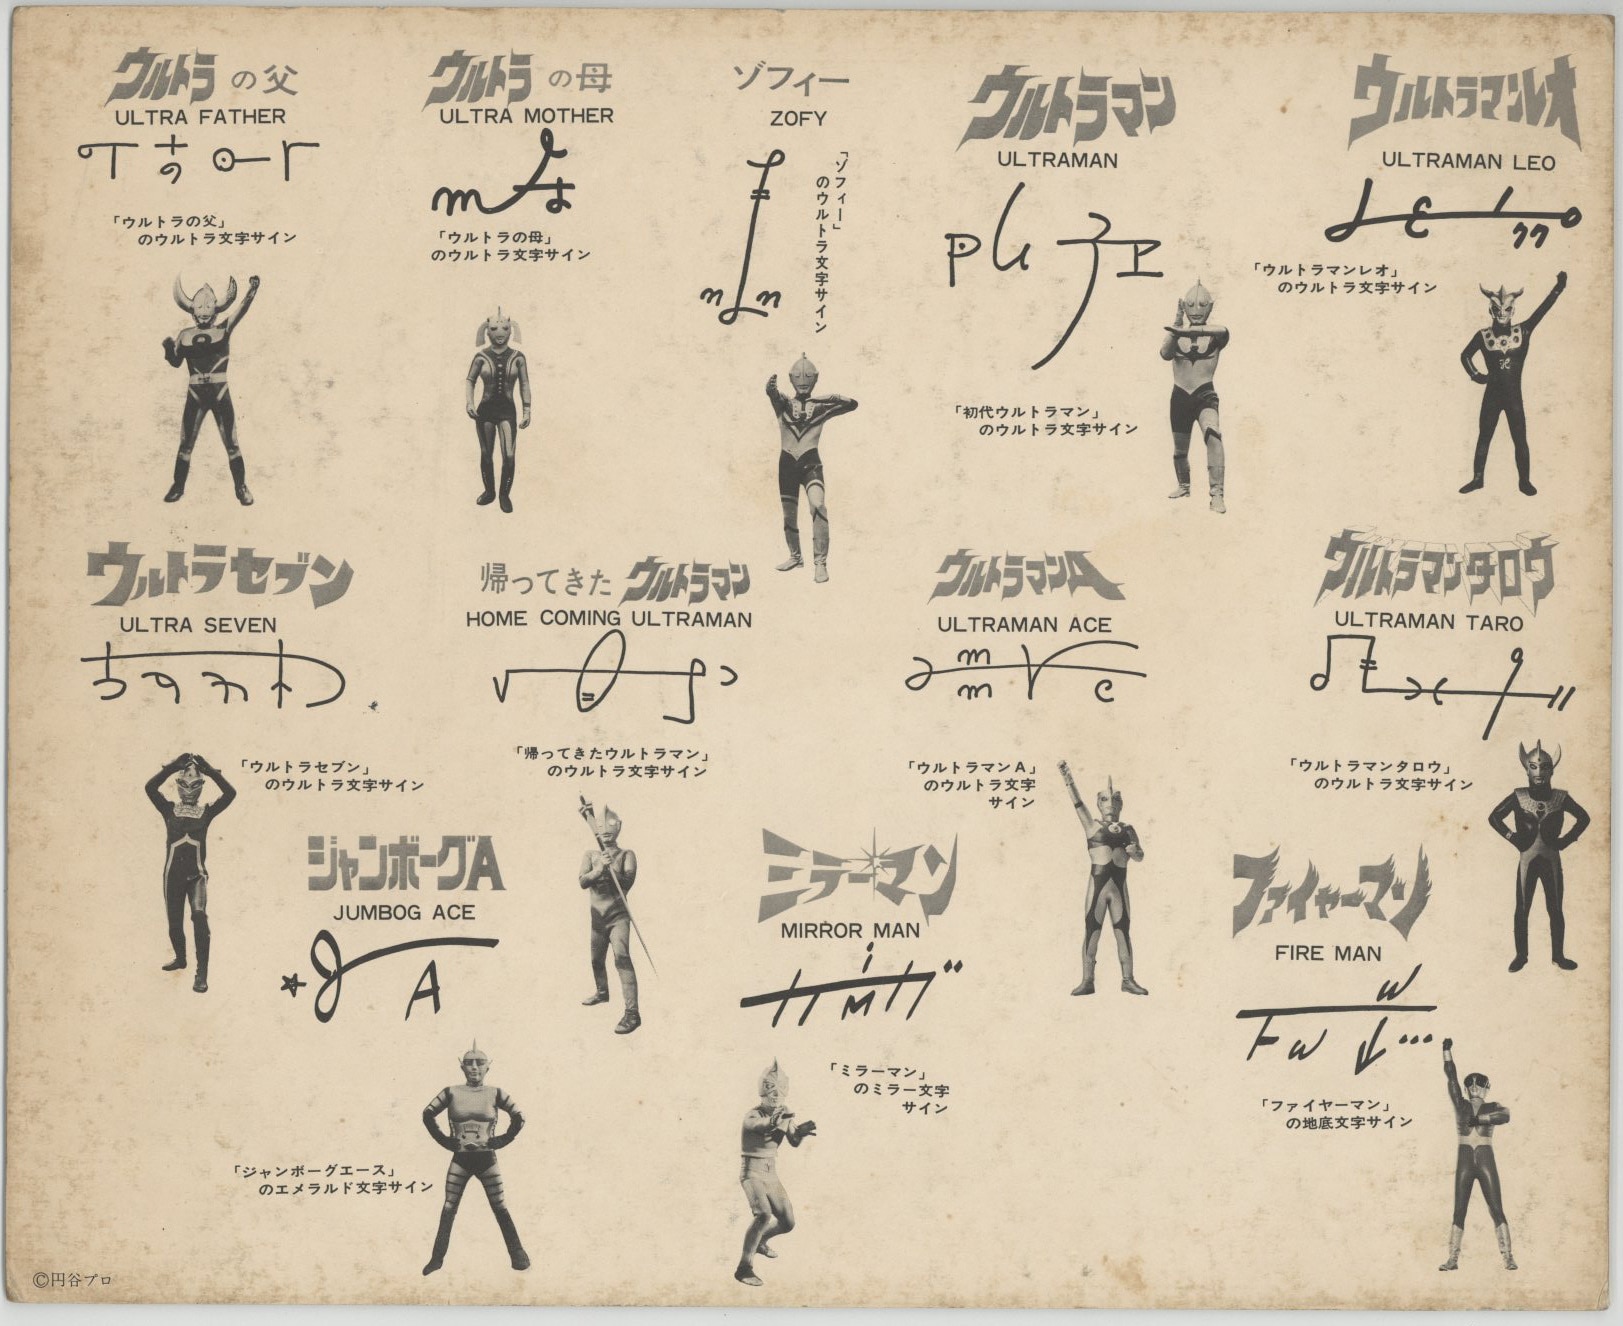 ウルトラの父
ULTRA FATHER
「ウルトラの父」
のウルトラ文字サイン
ウルトラの母
ULTRA MOTHER
「ウルトラの母」
のウルトラ文字サイン
ゾフィー
ZOFY
「ゾフィー」
のウルトラ文字サイン
ウルトラマン
ULTRAMAN
「初代ウルトラマン」
のウルトラ文字サイン
ウルトラマンレオ
ULTRAMAN LEO
「ウルトラマンレオ」
のウルトラ文字サイン
ウルトラセブン
ULTRA SEVEN
「ウルトラセブン」
のウルトラ文字サイン
帰ってきたウルトラマン
HOME COMING ULTRAMAN
「帰ってきたウルトラマン」
のウルトラ文字サイン
ウルトラマンA
ULTRAMAN ACE
「ウルトラマンA」
のウルトラ文字
サイン
ウルトラマンタロウ
ULTRAMAN TARO
「ウルトラマンタロウ」
のウルトラ文字サイン
ジャンボーグA
JUMBOG ACE
A
「ジャンボーグエース」
のエメラルド文字サイン
ミラーマン
MIRROR MAN
「ミラーマン」
のミラー文字
サイン
ファイヤーマン
FIRE MAN
「ファイヤーマン」
の地底文字サイン
©円谷プロ